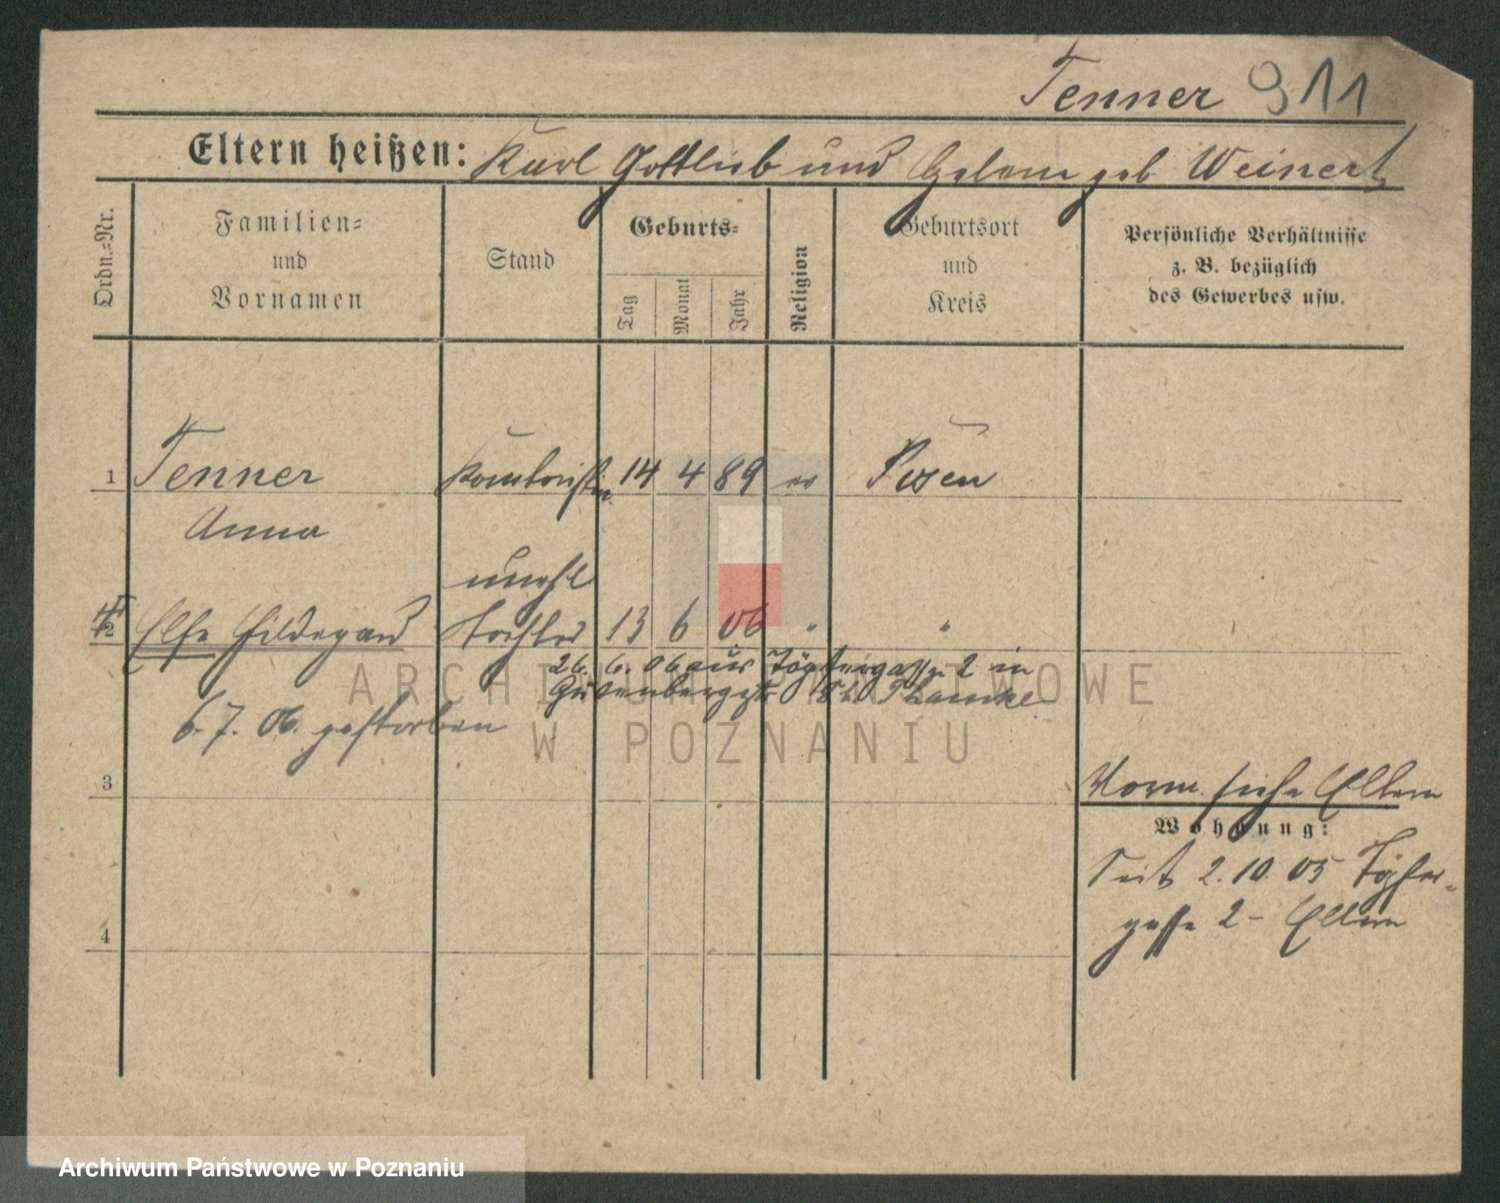 Tenner 911
Eltern heißen: Karl Gottlieb und Helene geb Weinert
Ordn.-Nr.
Familien-
und
Vornamen
Stand
Geburts-
Tag
Monat
Jahr
Religion
Geburtsort
und
Kreis
Persönliche Verhältnisse
z. B. bezüglich
des Gewerbes usw.
1 Tenner Kontoristin 14 4 89 ev Posen
Anna
unehl
2 Else Hildegard Tochter 13 6 06 " "
26. 6. 06 aus Töpfergasse 2 in
Gutenbergstr
6. 7. 06. gestorben
3
Vorm. siehe Eltern
Wohnung:
Seit 2. 10. 05 Töpfer-
gasse 2 - Eltern
4
ARCHIWUM PAŃSTWOWE
W POZNANIU
Archiwum Państwowe w Poznaniu